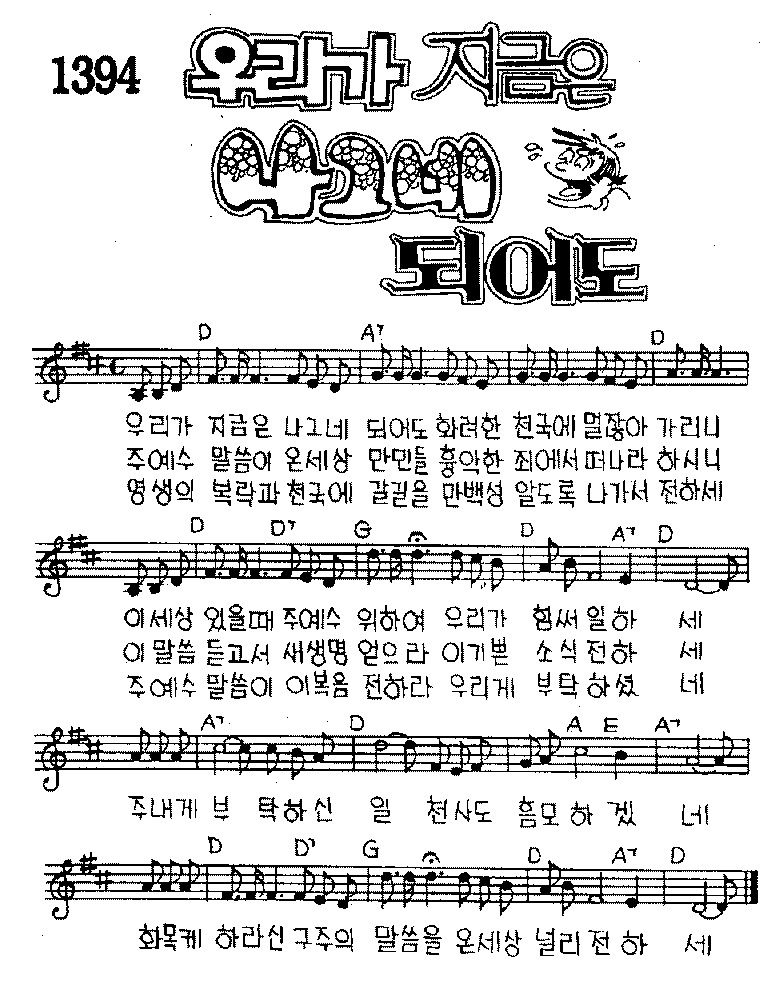 1394
우리가 지금은
나그네
되어도
D A7 D
우리가 지금은 나그네 되어도 화려한 천국에 멀잖아 가리니
주예수 말씀이 온세상 만민들 흉악한 죄에서 떠나라 하시니
영생의 복락과 천국에 갈길을 만백성 알도록 나가서 전하세
D D7 G D A7 D
이세상 있을때 주예수 위하여 우리가 힘써 일하 세
이 말씀 듣고서 새생명 얻으라 이기쁜 소식 전하 세
주예수 말씀이 이복음 전하라 우리게 부탁 하셨 네
A7 D A E A7
주내게 부 탁하신 일 천사도 흠모 하 겠 네
D D7 G D A7 D
화목케 하라신 구주의 말씀을 온세상 널리 전 하 세